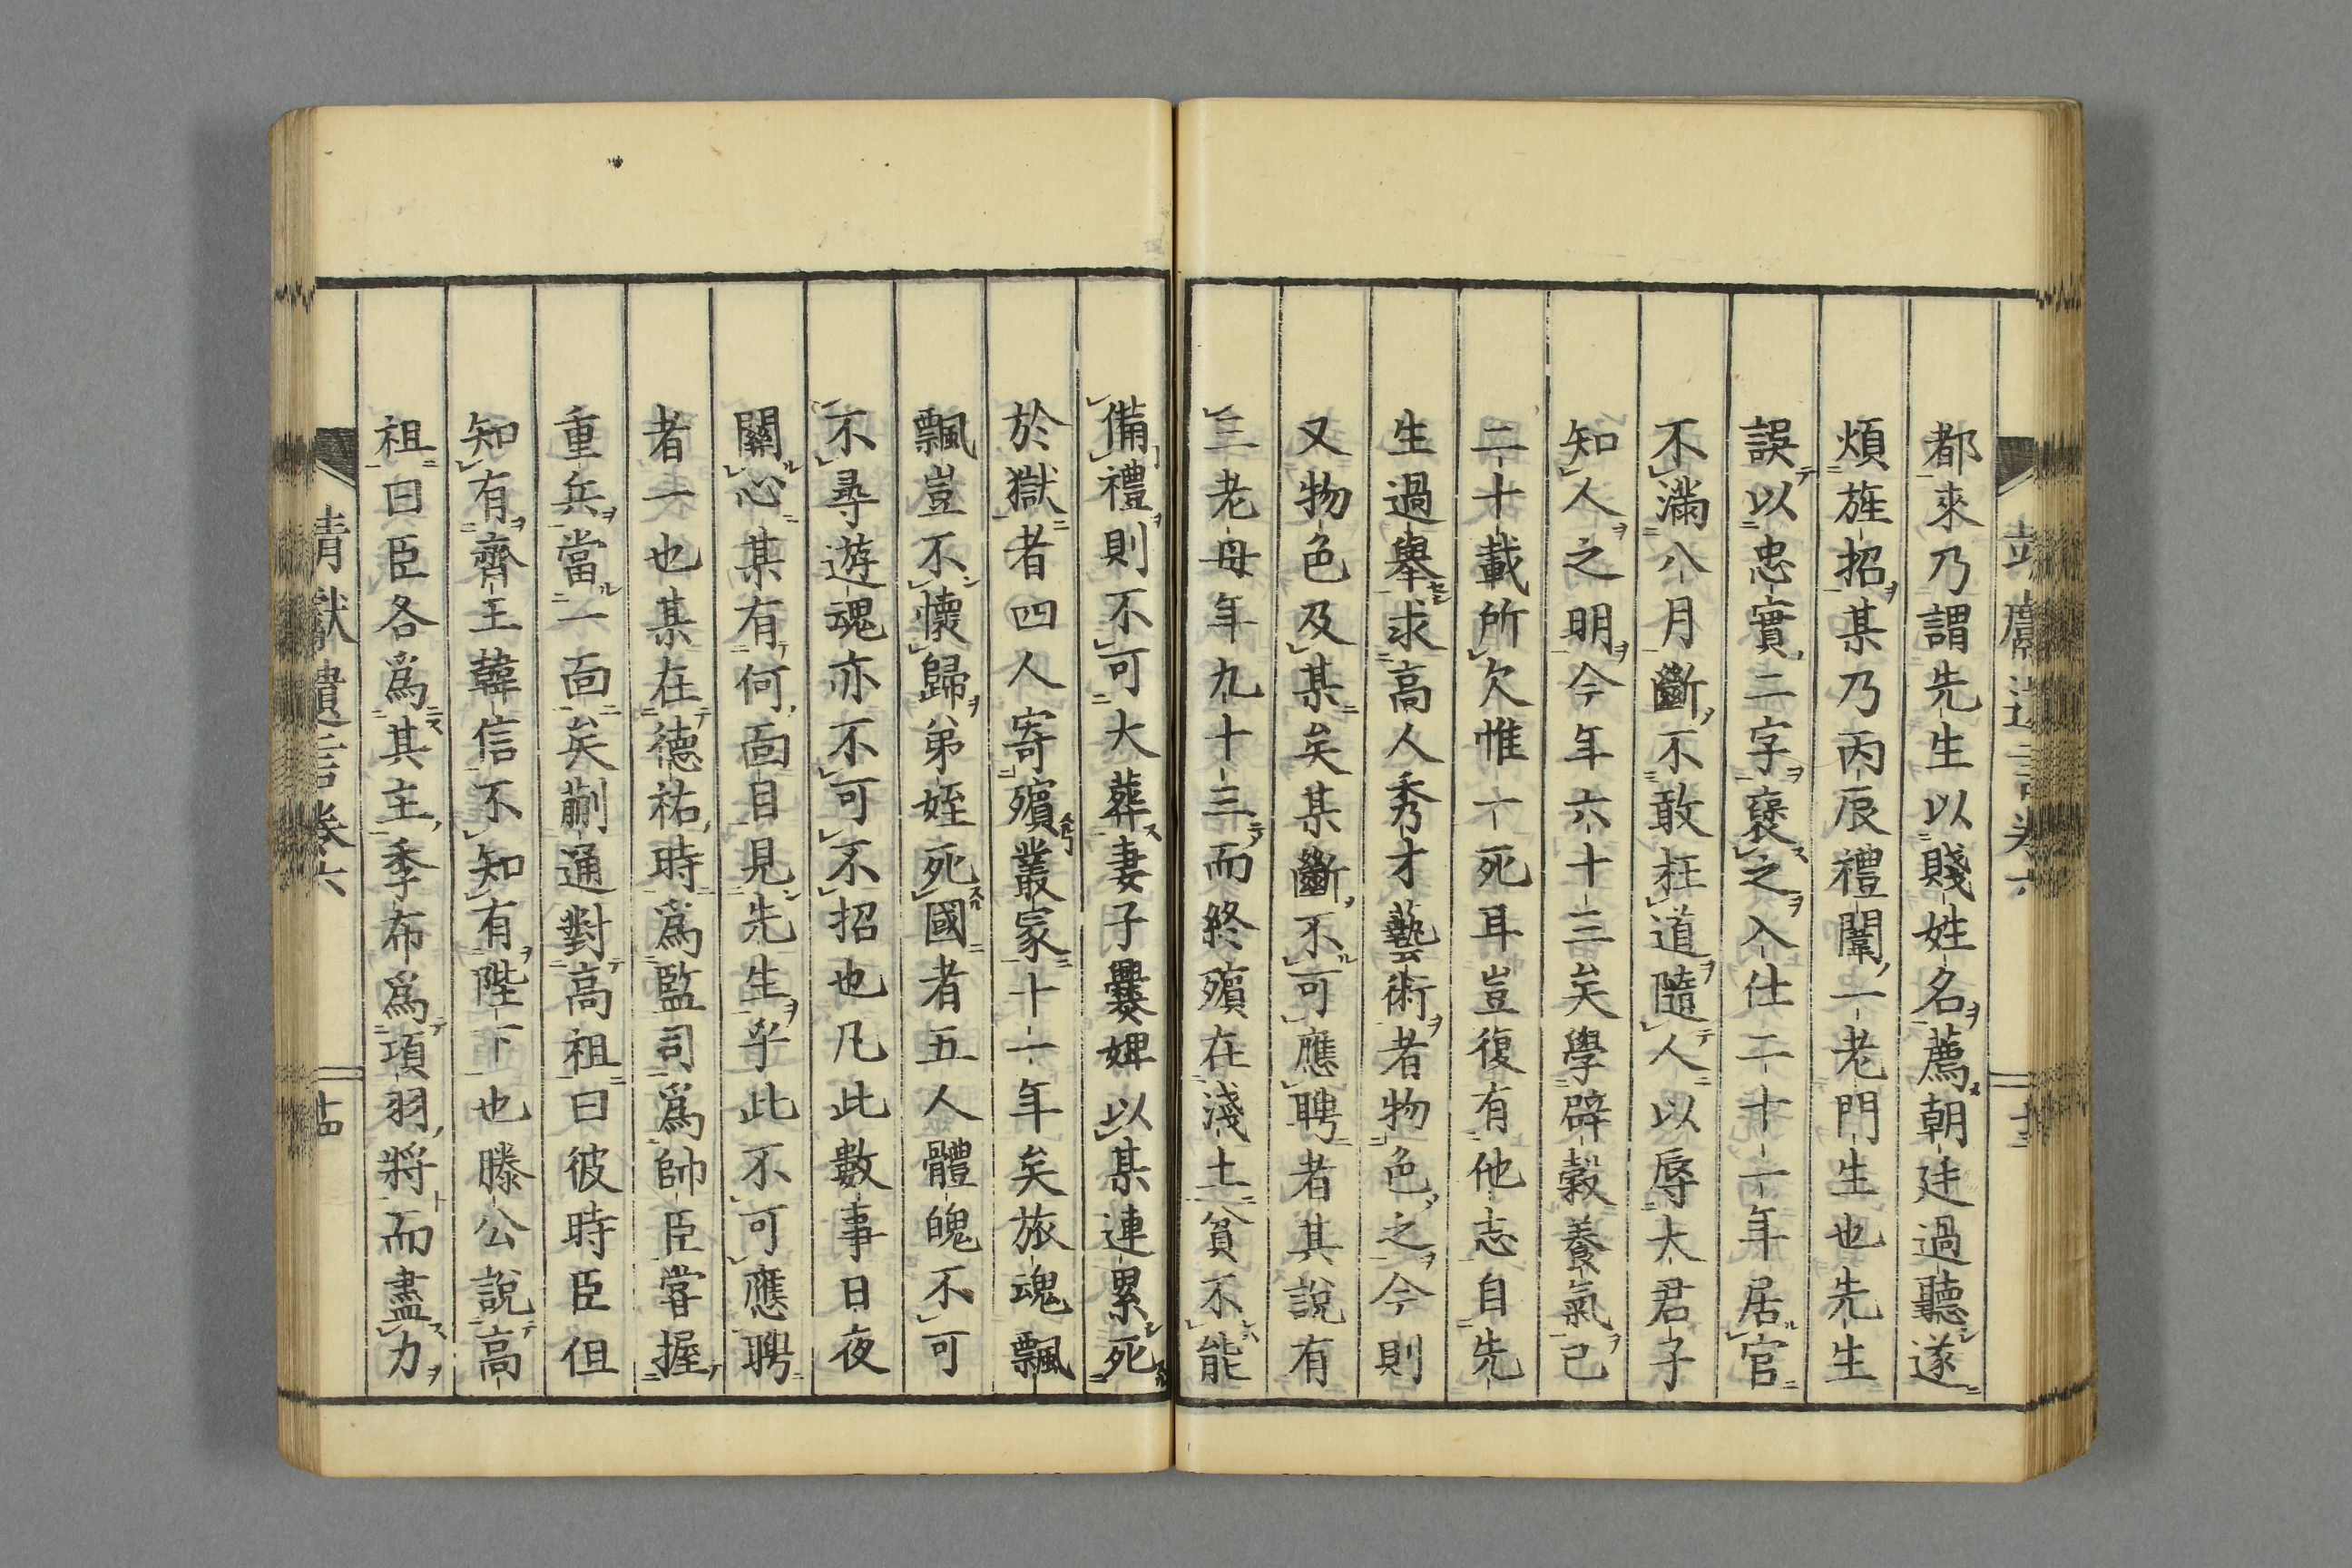 都來乃謂先生以賤姓名薦朝廷過聽遂
煩旌招某乃丙辰禮闈一老門生也先生
誤以忠實二字褒之入仕二十一年居官
不滿八月斷不敢枉道隨人以辱大君子
知人之明今年六十三矣學辟穀養氣已
二十載所欠惟一死耳豈復有他志自先
生過舉求高人秀才藝術者物色之今則
又物色及某矣某斷不可應聘者其說有
三老母年九十三而終殯在淺土貧不能
備禮則不可大葬妻子爨婢以某連累死
於獄者四人寄殯叢冢十一年矣旅魂飄
飄豈不懷歸弟姪死國者五人體魄不可
不尋遊魂亦不可不招也凡此數事日夜
關心某有何面目見先生乎此不可應聘
者一也某在德祐時爲監司爲帥臣嘗握
重兵當一面矣蒯通對高祖曰彼時臣但
知有齊王韓信不知有陛下也滕公說高
祖曰臣各爲其主季布爲項羽將而盡力
靖獻遺言卷六
十四